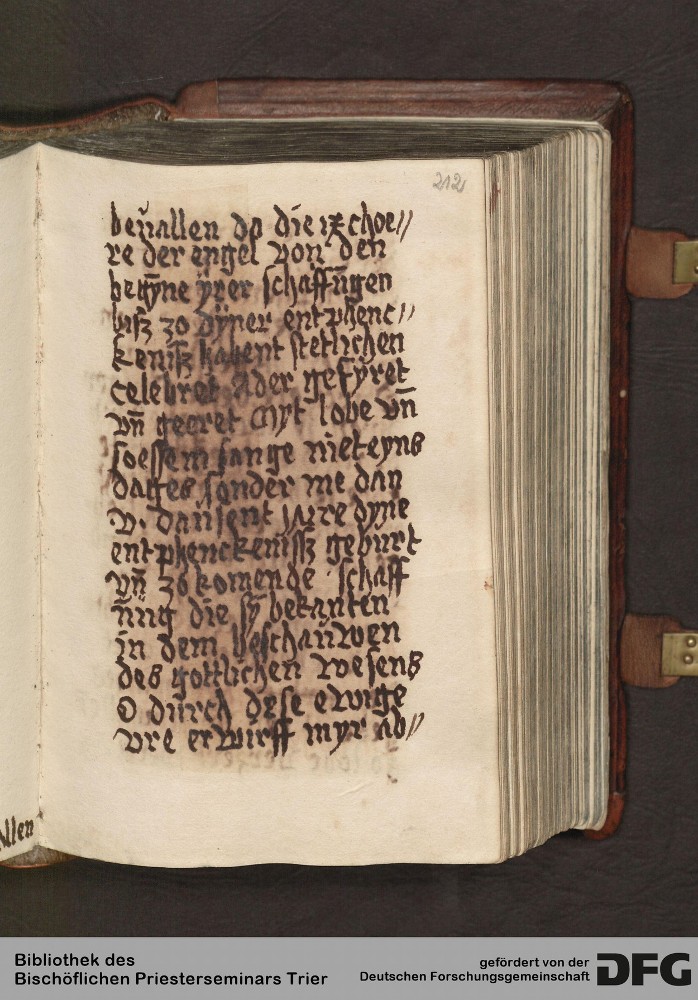 212
beuallen do die ix choe//
re der engel von den
begȳne ÿrer schaffūgen
biſz zo dÿner entphenc//
keniſz habent stetlichen
celebret ader gefÿret
vn̄ geeret Myt lobe vn̄
soessem sange niet eyns
dages sonder me dan
v. dausent Jare dyne
entphenckenisſz geburt
vn̄ zo komende schaff
ūng die sÿ bekanten
in dem beschauwen
des gottlichen wesens
O durch dese ewige
vre erwirff myr ab//
allen
Bibliothek des
Bischöflichen Priesterseminars Trier
gefördert von der
Deutschen Forschungsgemeinschaft
DFG